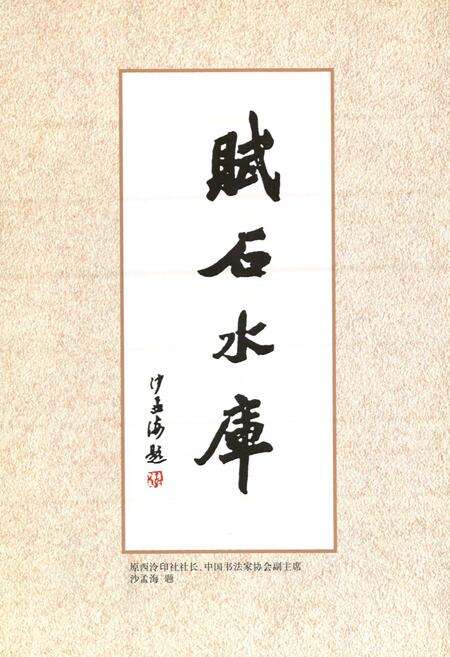 賦石水庫
沙孟海题
原西泠印社社长、中国书法家协会副主席
沙孟海 题